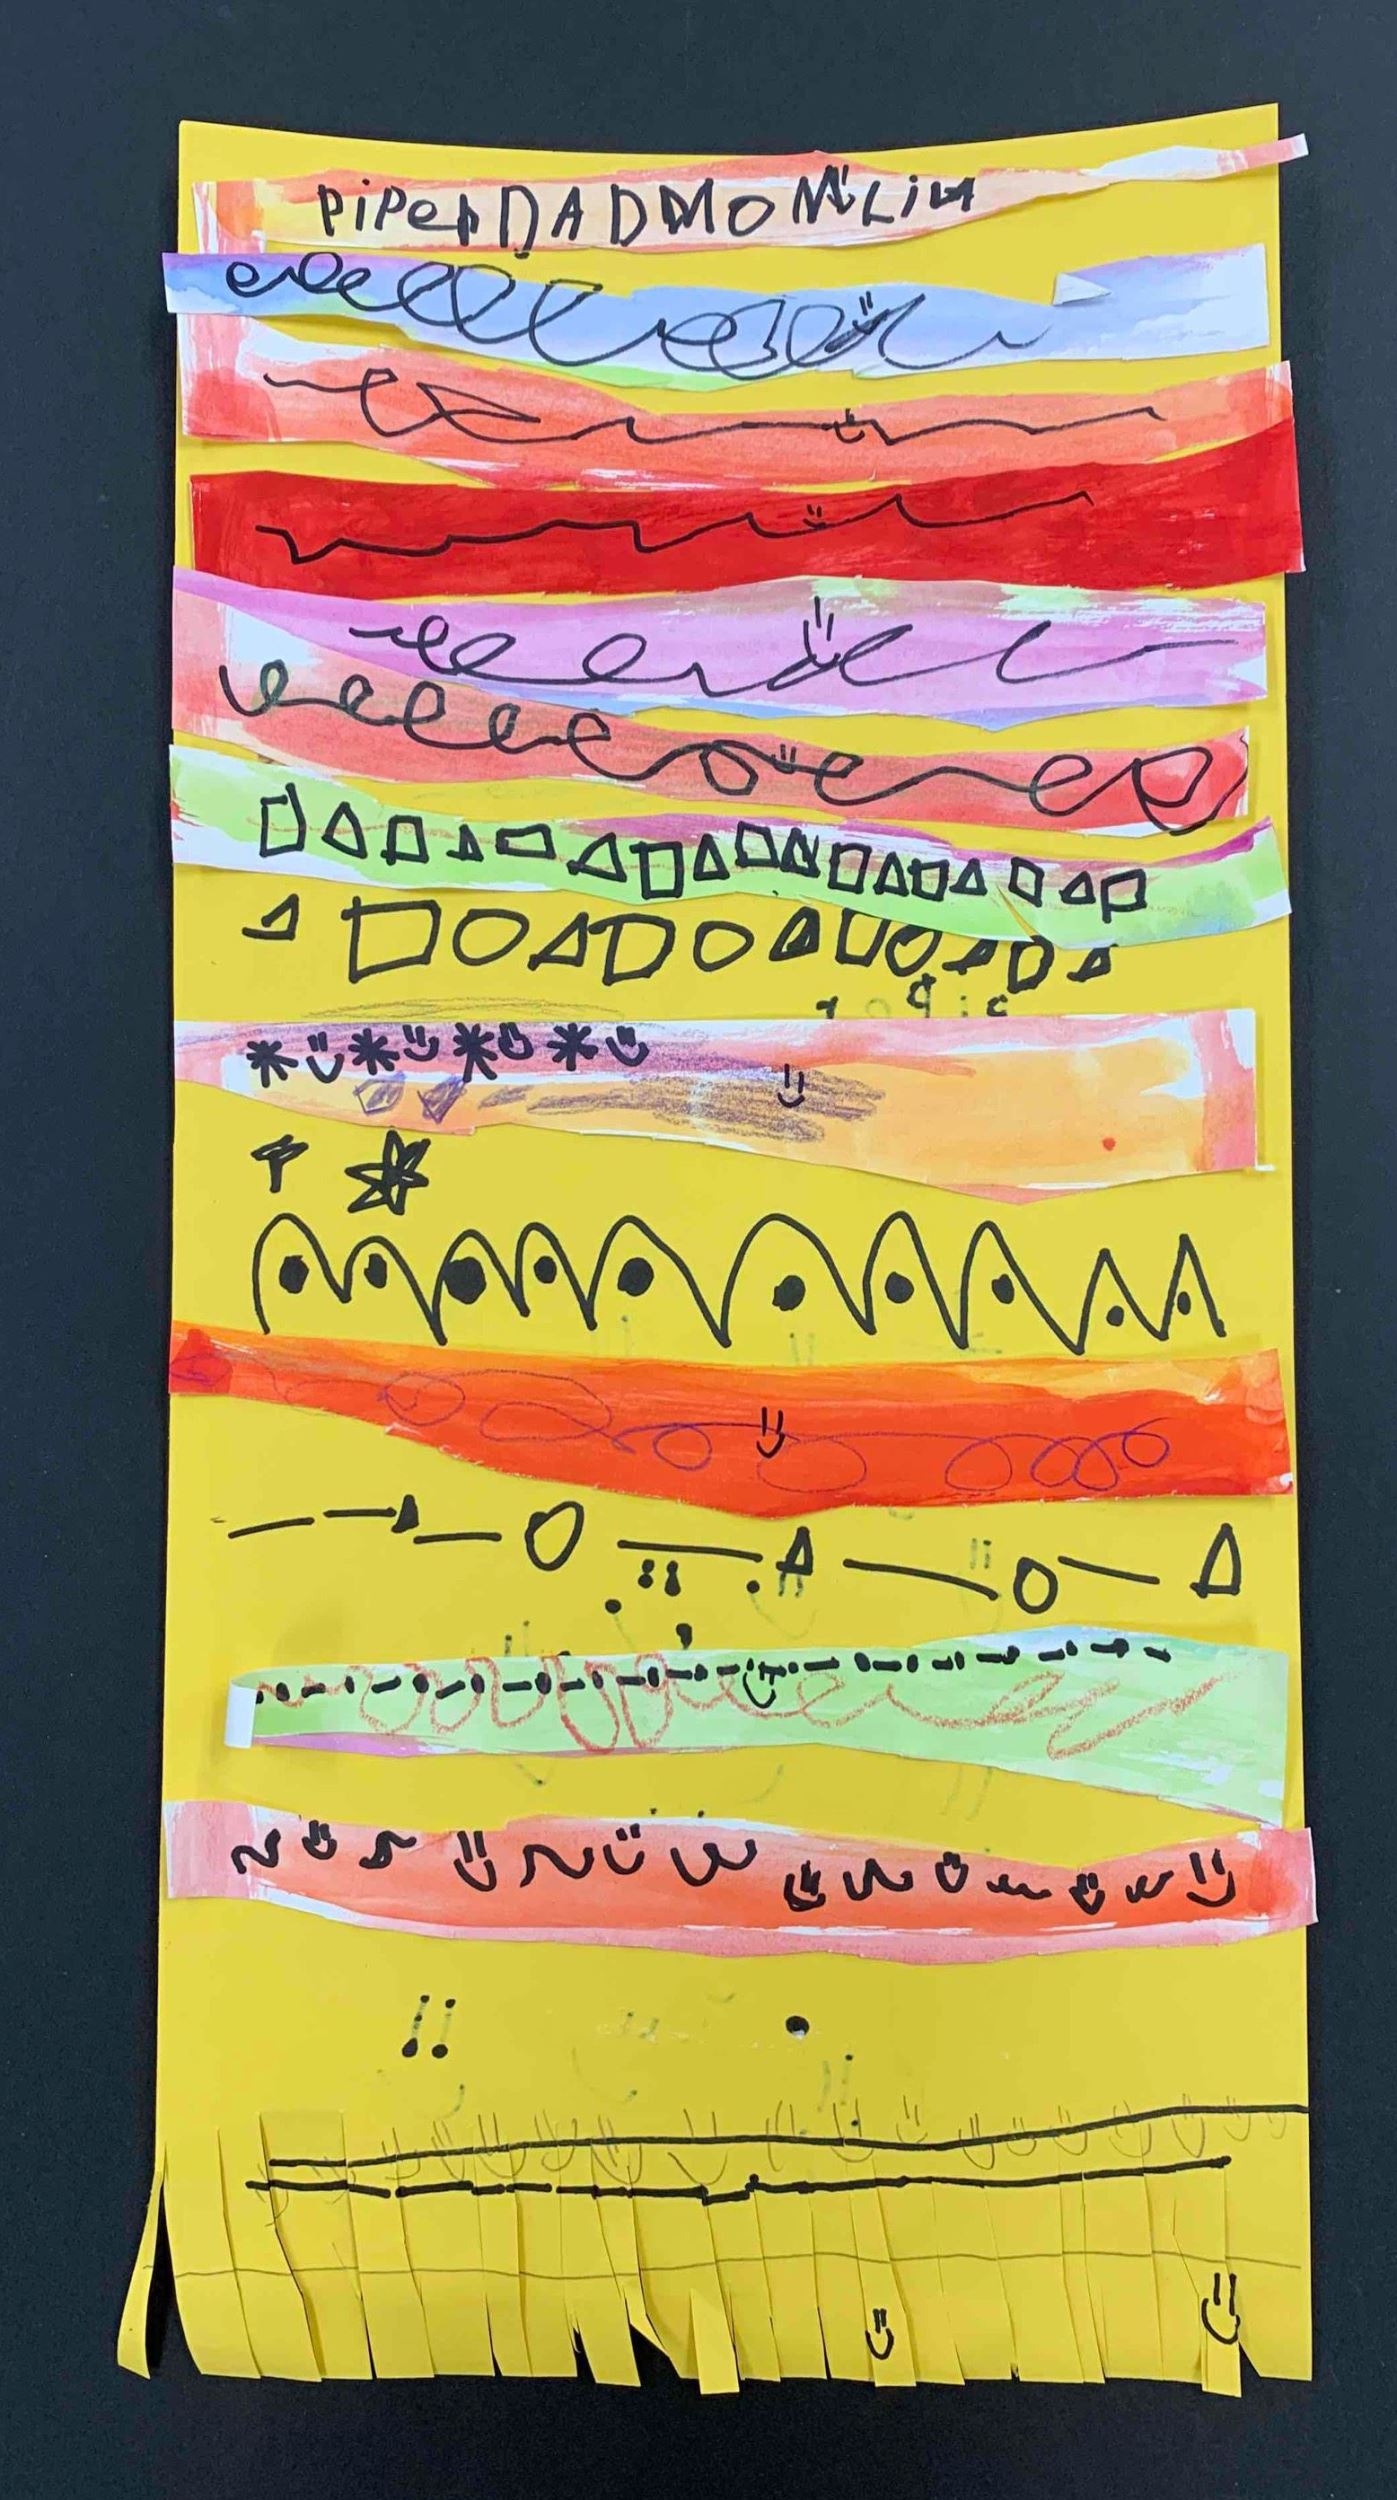 PiPer DADMOM LiLA